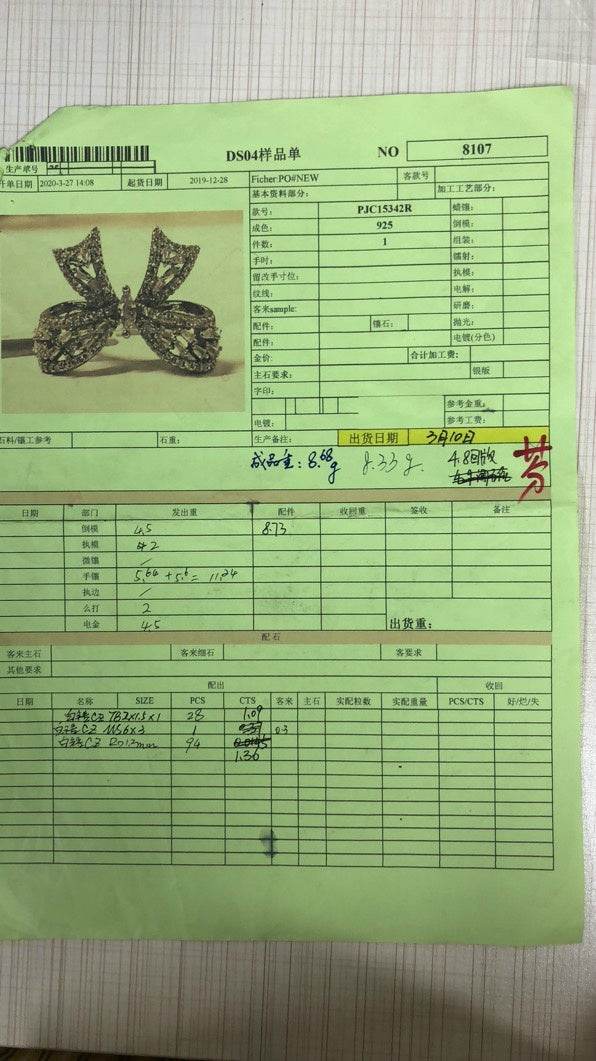 DS04样品单 NO 8107
生产单号
开单日期 2020-3-27 14:08 起货日期 2019-12-28 Ficher:PO#NEW 客款号
基本资料部分: 加工工艺部分:
款号: PJC15342R 蜡镶:
成色: 925 倒模:
件数: 1 组装:
手时: 镭射:
留改手寸位: 执模:
纹线: 电解:
客来sample: 研磨:
配件: 镶石: 抛光:
配件: 电镀(分色)
金价: 合计加工费:
主石要求: 银版
字印:
参考金重:
电镀: 参考工费:
石料/镶工参考 石重: 生产备注: 出货日期 3月10日
成品重: 8.68g 8.33g. 4.8回版
芬
日期 部门 发出重 配件 收回重 签收 备注
倒模 4.5 8.73
执模 2
微镶 /
手镶 5.64 + 5.6 = 11.24
执边 /
么打 2
电金 4.5 出货重:
配石
客来主石 客来细石 客要求
其他要求
配出 收回
日期 名称 SIZE PCS CTS 客来 主石 实配粒数 实配重量 PCS/CTS 好/烂/失
CZ TB2x1.5x1 28 1.09
CZ MS6x3 1 0.3
CZ R01.2mm 94
1.36